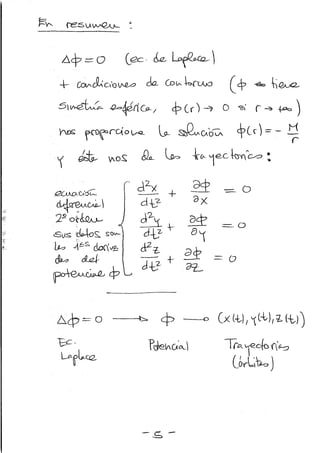 En resumen :
Δϕ = 0 (ec. de Laplace)
+ condiciones de contorno (ϕ tiene
simetría esférica, ϕ(r) → 0 si r → +∞)
nos proporciona la solución ϕ(r) = - M/r
y ésta nos da las trayectorias :
ecuación diferencial 2º orden
sus datos son
las 1ªs deriv.
del
potencial ϕ
d²x/dt² + ∂ϕ/∂x = 0
d²y/dt² + ∂ϕ/∂y = 0
d²z/dt² + ∂ϕ/∂z = 0
Δϕ = 0 → ϕ → (x(t), y(t), z(t))
Ec. Laplace
Potencial
Trayectorias (órbitas)
- 5 -